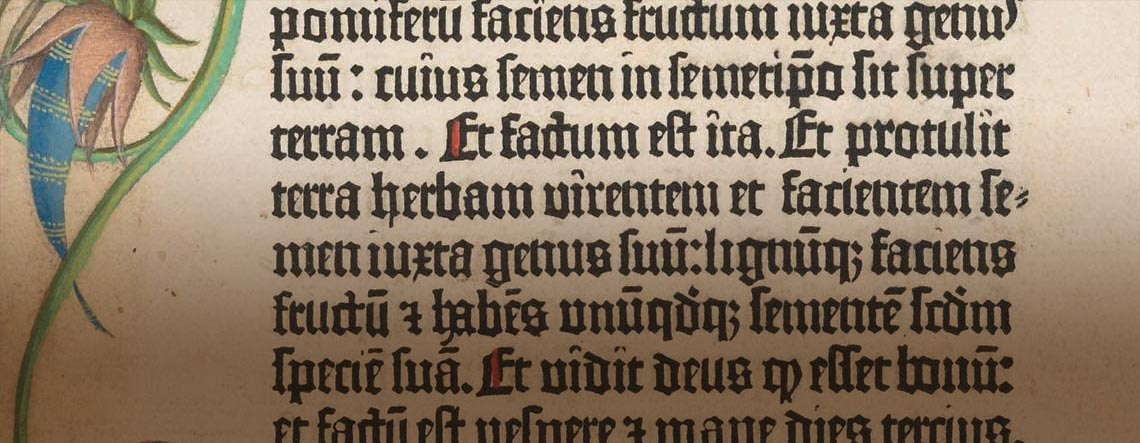 pomiferū faciens fructum iuxta genus
suū : cuius semen in semetip̄o sit super
terram . Et factum est ita. Et protulit
terra herbam virentem et facientem se⸗
men iuxta genus suū:lignūq; faciens
fructū ⁊ habēs unūqdq; sementē scdm
speciē suā. Et vidit deus ꝙ esset bonū:
et factū est vespere ⁊ mane dies tercius